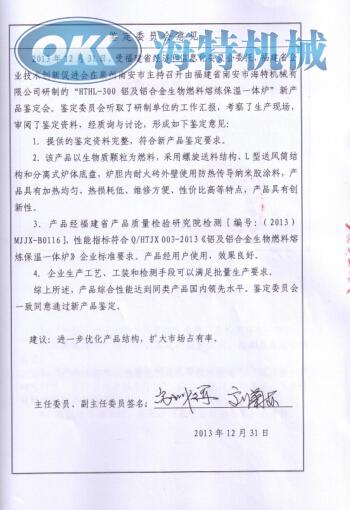 鉴定委员会意见
OKK 海特机械
2013年12月31日,受福建省经济和信息化委员会委托,福建省企
业技术创新促进会在泉州南安市主持召开由福建省南安市海特机械有
限公司研制的“HTHL-300 铝及铝合金生物燃料熔炼保温一体炉”新产
品鉴定会。鉴定委员会听取了研制单位的工作汇报,考察了生产现场,
审阅了鉴定资料,经质询与讨论,形成如下鉴定意见:
1、提供的鉴定资料完整,符合新产品鉴定要求。
2、该产品以生物质颗粒为燃料,采用螺旋送料结构、L型送风筒结
构和分离式炉体底盘,炉胆内耐火砖外壁使用防热传导的米胶涂料,产
品具有加热均匀、热损耗低、维修方便、性价比高等特点,产品具有创
新性。
3、产品经福建省产品质量检验研究院检测[编号:(2013)
MJJX-B0116],性能指标符合Q/HTJX 003-2013《铝及铝合金生物燃料熔
炼保温一体炉》企业标准要求。产品经用户使用,效果良好。
4、企业生产工艺、工装和检测手段可以满足批量生产要求。
综上所述,产品综合性能达到同类产品国内领先水平。鉴定委员会
一致同意通过新产品鉴定。
建议:进一步优化产品结构,扩大市场占有率。
主任委员、副主任委员签名:
2013年12月31日